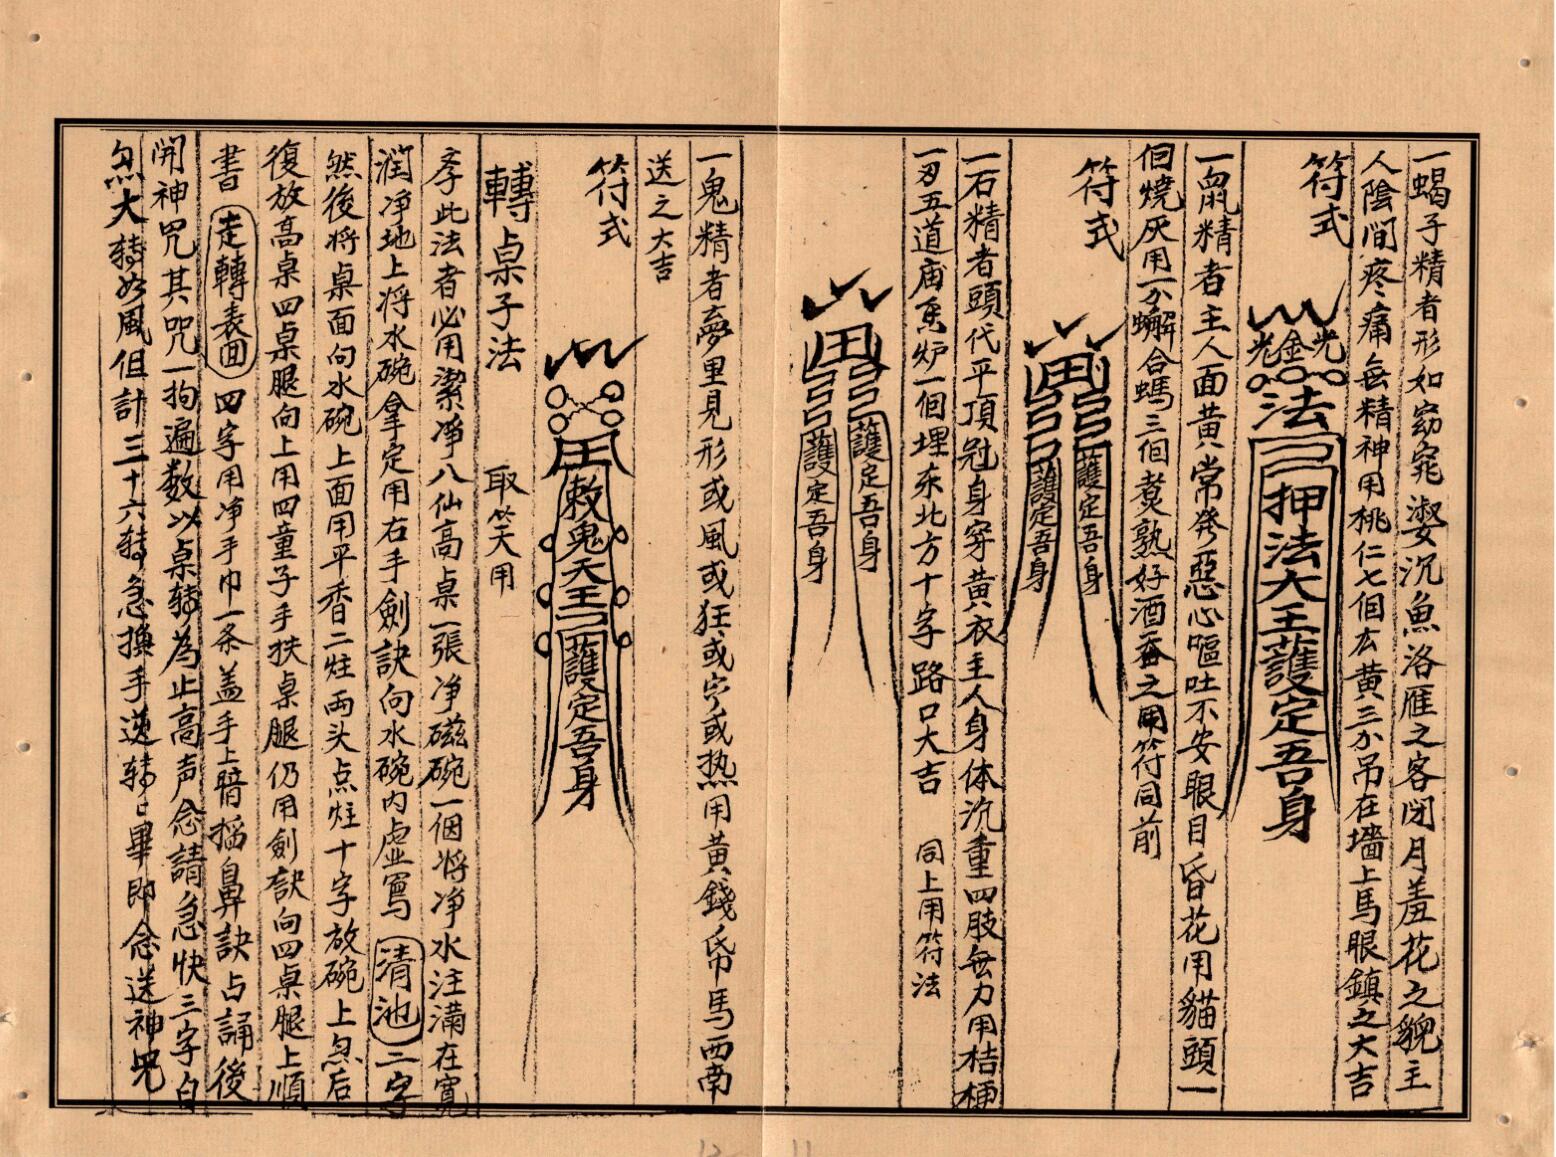 一蝎子精者形如窈窕淑女沉魚洛雁之客閉月羞花之貌主
人陰間疼痛無精神用桃仁七個玄黄三分吊在墻上馬眼鎮之大吉
符式
光金光
法
押法大王護定吾身
一鼠精者主人面黄常発惡心嘔吐不安眼目昏花用貓頭一
但燒灰用一分蠏合螞三個煑熟好酒吞之用符同前
符式
護定吾身
護定吾身
一石精者頭代平頂冠身穿黄衣主人身体沉重四肢無力用桔梗
一刃五道庙焦炉一個埋东北方十字路口大吉 同上用符法
護定吾身
護定吾身
一鬼精者夢里見形或風或狂或定或热用黄錢帋馬西南
送之大吉
符式
敕鬼天王護定吾身
轉桌子法 取笑用
季此法者必用潔凈八仙高桌一張凈磁碗一個将凈水注满在寬
濶凈地上将水碗拿定用右手劍訣向水碗内虚寫 清池 二字
然後将桌面向水碗上面用平香二炷两头点炷十字放碗上忽后
復放高桌四桌腿向上用四童子手扶桌腿仍用劍訣向四桌腿上順
書 走轉表面 四字用净手巾一条盖手上暗掐鼻訣占誦後
開神咒其咒一拘遍数以桌转為止高声念請急快三字白
忽大转如風但計三十六转急换手逆转已畢即念送神咒